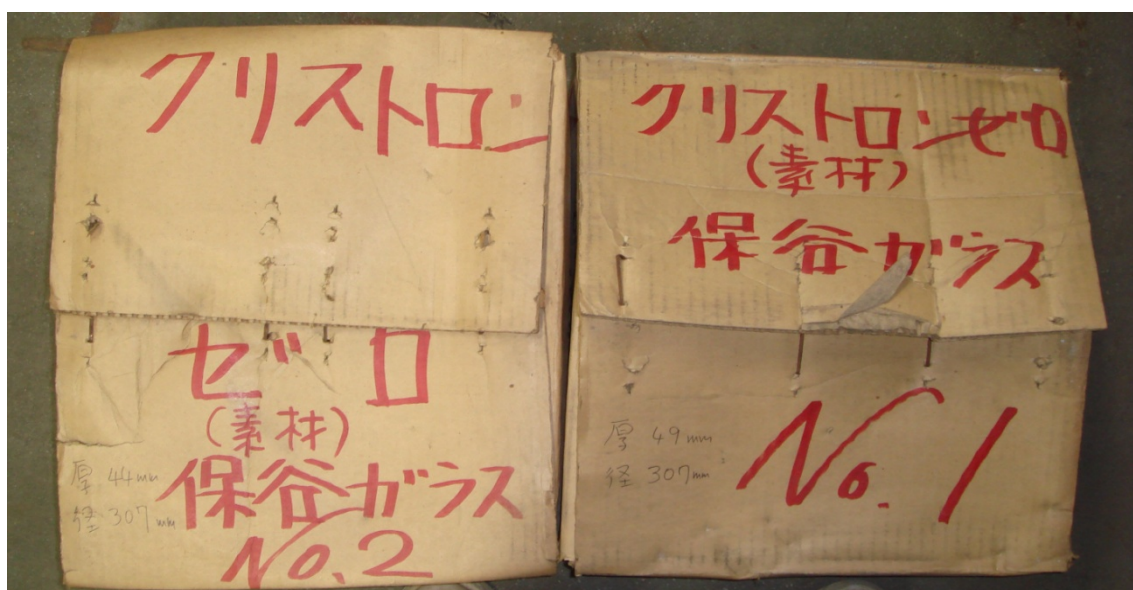 クリストロン
ゼロ
(素材)
厚 44mm
径 307mm
保谷ガラス
No.2
クリストロンゼロ
(素材)
保谷ガラス
厚 49mm
径 307mm
No.1